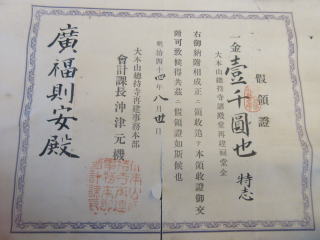 假領證
一金壹千圓也 特志
大本山總持寺諸殿堂再建祠堂金
右御納附相成正ニ領收追テ本領收證御交
附可致候得共茲ニ假領證如斯候也
明治四十四年八月廿日
大本山總持寺再建事務本部
會計課長 沖津元機
廣福則安殿